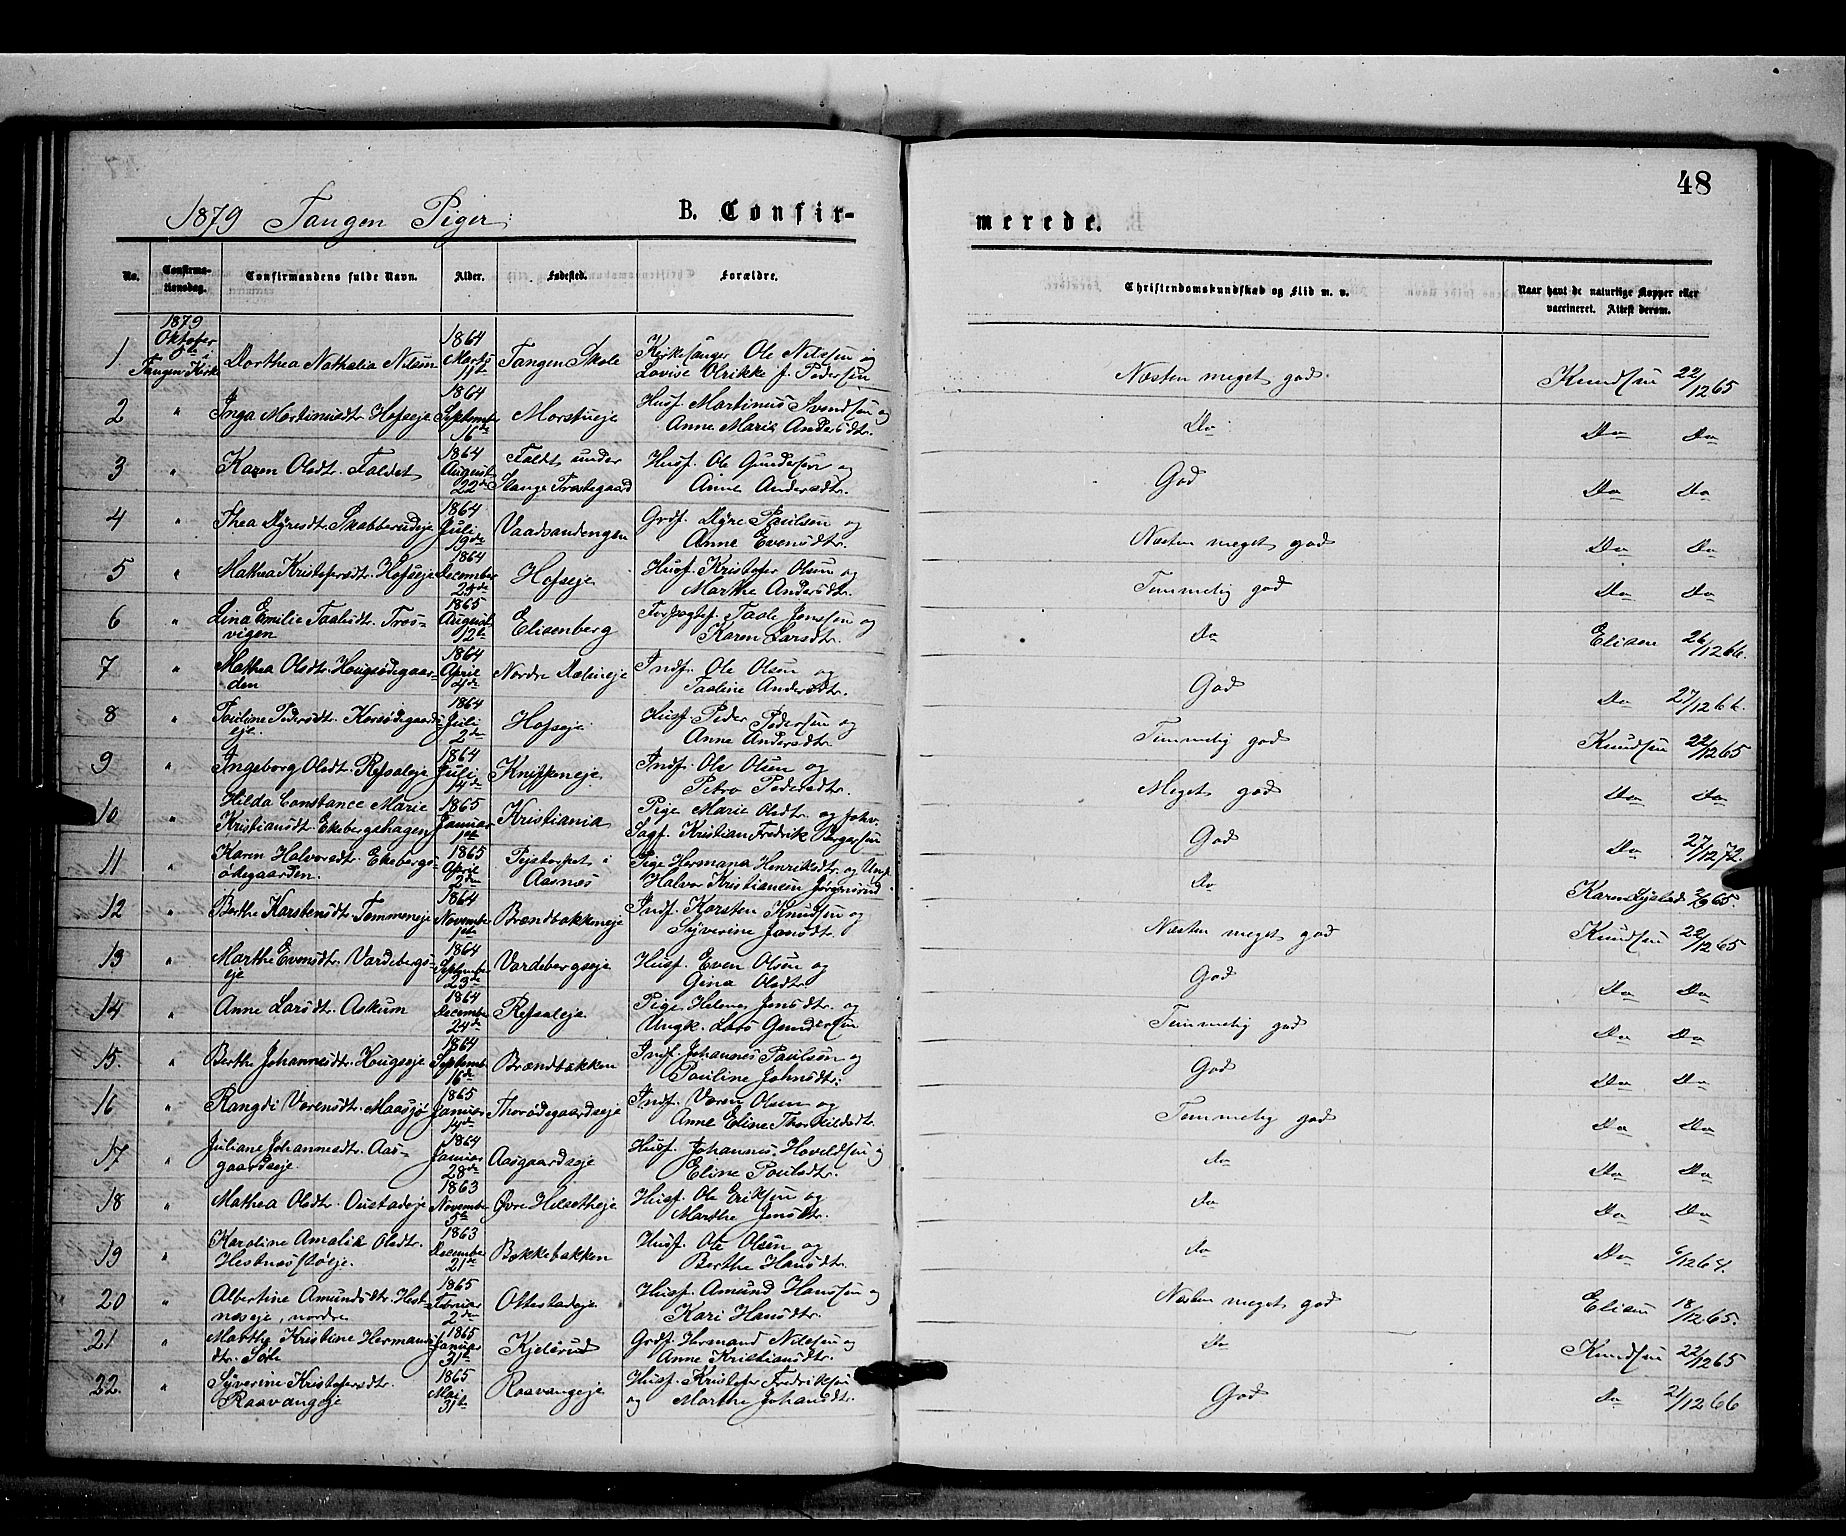 48
1879 Tangen Piger. B. Confir-
merede.
No. Confirmationsdag. Confirmandens fulde Navn. Alder. Fødested. Forældre. Christendomskundskab og Flid m. v. Naar havt de naturlige Kopper eller vaccineret. Attest derom.
1879 Oktober i Tangen Kirke
1 Dorthea Nathalia Nilsen 1864 Marts 11te Tangen Skole Kirkesanger Ole Nilssen og Lovise Olrikke f. Pedersen Næsten meget god. Knudsen 22/12 65
2 " Inga Martinusdtr. Hofseje 1864 September 16de Morstueje Husf. Martinus Svendsen og Anne Marie Andersdtr. Do Do Do
3 " Karen Olsdtr. Faldet 1864 August 22de Faldet under Stange Præstegaard Husf. Ole Gundersen og Anne Andersdtr. God Do Do
4 " Thea Dyresdtr. Skabberudeje 1864 Juli 19de Vaadsandengen Grdf. Dyre Paulsen og Anne Evensdtr. Næsten meget god Do Do
5 " Mathea Kristofersdtr. Hofseje 1864 December 25de Hofseje Husf. Kristofer Olsen og Marthe Andersdtr. Temmelig god Do Do
6 " Lina Emilie Taalesdtr. Træsvigen 1865 August 12te Elisenberg Taale Jenssen og Karen Larsdtr. Do Elisen 26/12 66.
7 " Mathea Olsdtr. Hougsødegaarden 1864 April 4de Nordre Dælineje Indf. Ole Olsen og Taaline Andersdtr. God Do 27/12 66.
8 " Pauline Pedersdtr. Korsødegaardseje. 1864 Juli 2de Hofseje Husf. Peder Pedersen og Anne Andersdtr. Temmelig god Knudsen 22/12 65
9 " Ingeborg Olsdtr. Refsaleje 1864 Juli 14de Knippeneje. Indf. Ole Olsen og Petra Pedersdtr. Meget god Do Do
10 " Hilda Constance Marie Kristiansdtr. Ekebergshagen 1865 Januar 1ste Kristiania Pige Marie Olsdtr. og Sagf. Kristian Fredrik Borgersen God Do 27/12 72.
11 " Karen Halvorsdtr. Ekebergsødegaarden. 1865 April 2den i Aasnes Pige Hermana Henriksdtr. og Ungk. Halvor Kristiansen Do
12 " Berthe Karstensdtr. Tommeneje 1864 November 1ste Brændbakkeneje Indf. Karsten Knudsen og Syverine Jensdtr. Næsten meget god Knudsen 22/12 65
13 " Marthe Evensdtr. Vardebergseje 1864 September 23de Vardebergseje Husf. Even Olsen og Gina Olsdtr. God Do Do
14 " Anne Larsdtr. Askum 1864 December 24de Refsaleje Pige Helene Jensdtr. og Ungk. Lars Gundersen Temmelig god Do Do
15. " Berthe Johannesdtr. Hougseje 1864 September 16de Brændbakken Indf. Johannes Paulsen og Pauline Johnsdtr. God Do Do
16 " Rangdi Vorensdtr. Maasjø 1865 Januar 14de Thorødegaardseje Indf. Voren Olsen og Anne Eline Thorkildsdtr. Temmelig god Do Do
17 " Juliane Johannesdtr. Aasgaardseje. 1864 Januar 28de Aasgaardseje Husf. Johannes Hoveldsen og Eline Paulsdtr. Do Do Do
18 " Mathea Olsdtr. Oustadeje 1863 November 5te Øvre Helsetheje Husf. Ole Eriksen og Marthe Jensdtr. Do Do Do
19 " Karoline Amalie Olsdtr. Hestnæsstøeje. 1863 December 21de Bækkebakken Husf. Ole Olsen og Berthe Hansdtr. Do Do 6/12 64.
20 " Albertine Amundsdtr. Hestnæseje, nordre 1865 Februar 2den Ottestadeje Husf. Amund Hanssen og Kari Hansdtr. Næsten meget god Elisen 18/12 65.
21 " Marthe Kristine Hermansdtr. Sole 1865 Januar 31te Kjelsrud Grdf. Hermand Nilssen og Anne Kristiansdtr. Do Knudsen 22/12 65
22. " Syverine Kristofersdtr. Raavangeje 1865 Mai 31te Raavangeje Husf. Kristofer Fredriksen og Marthe Johansdtr. God Do 21/12 66